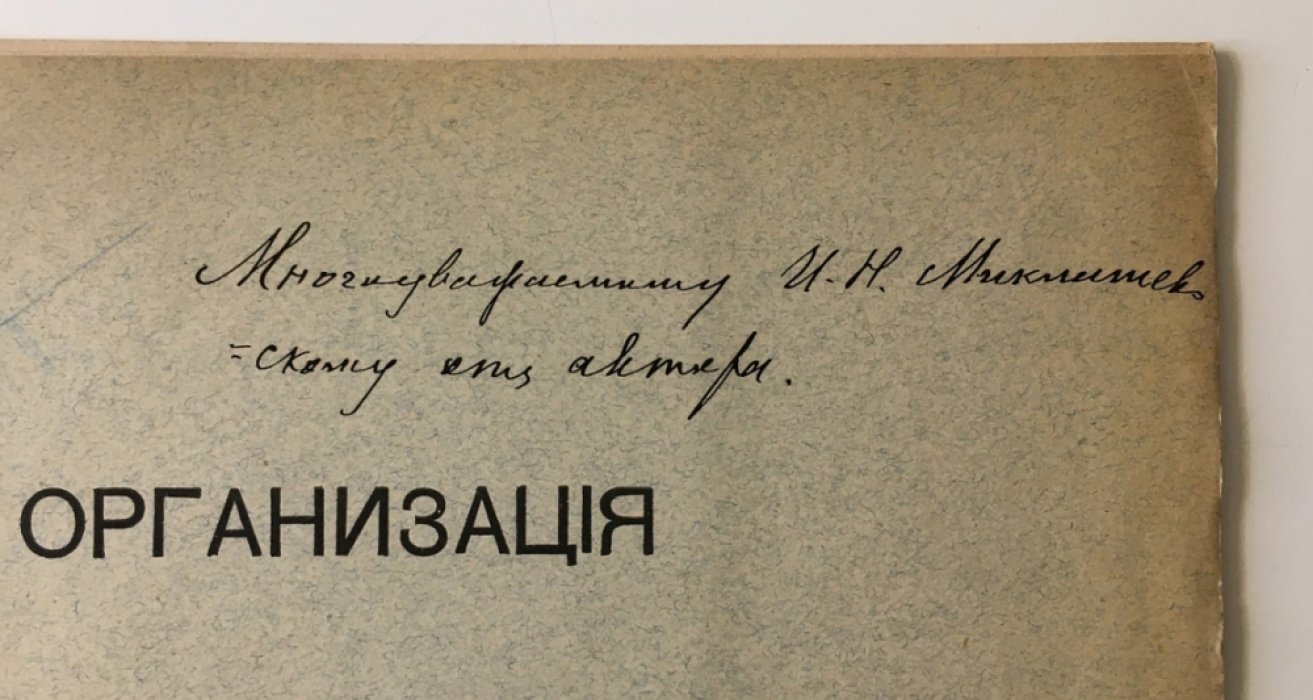 Многоуважаемому И. Н. Миклашев
=скому отъ автора.
ОРГАНИЗАЦІЯ